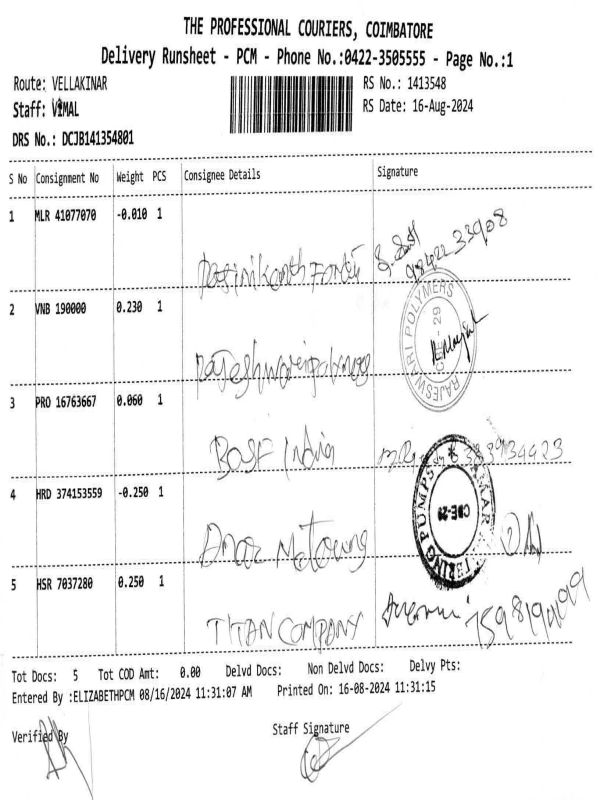 THE PROFESSIONAL COURIERS, COIMBATORE
Delivery Runsheet - PCM - Phone No.:0422-3505555 - Page No.:1
Route: VELLAKINAR
RS No.: 1413548
Staff: VIMAL
RS Date: 16-Aug-2024
DRS No.: DCJB141354801
S No Consignment No Weight PCS Consignee Details Signature
1 MLR 41077070 -0.010 1
98422 33908
2 VNB 190000 0.230 1
RAJESWARI POLYMERS
CBE - 29
3 PRO 16763667 0.060 1
BASF India
4 HRD 374153559 -0.250 1
CBE-29
5 HSR 7037280 0.250 1
TITAN COMPANY
Tot Docs: 5 Tot COD Amt: 0.00 Delvd Docs: Non Delvd Docs: Delvy Pts:
Entered By :ELIZABETHPCM 08/16/2024 11:31:07 AM Printed On: 16-08-2024 11:31:15
Verified By Staff Signature